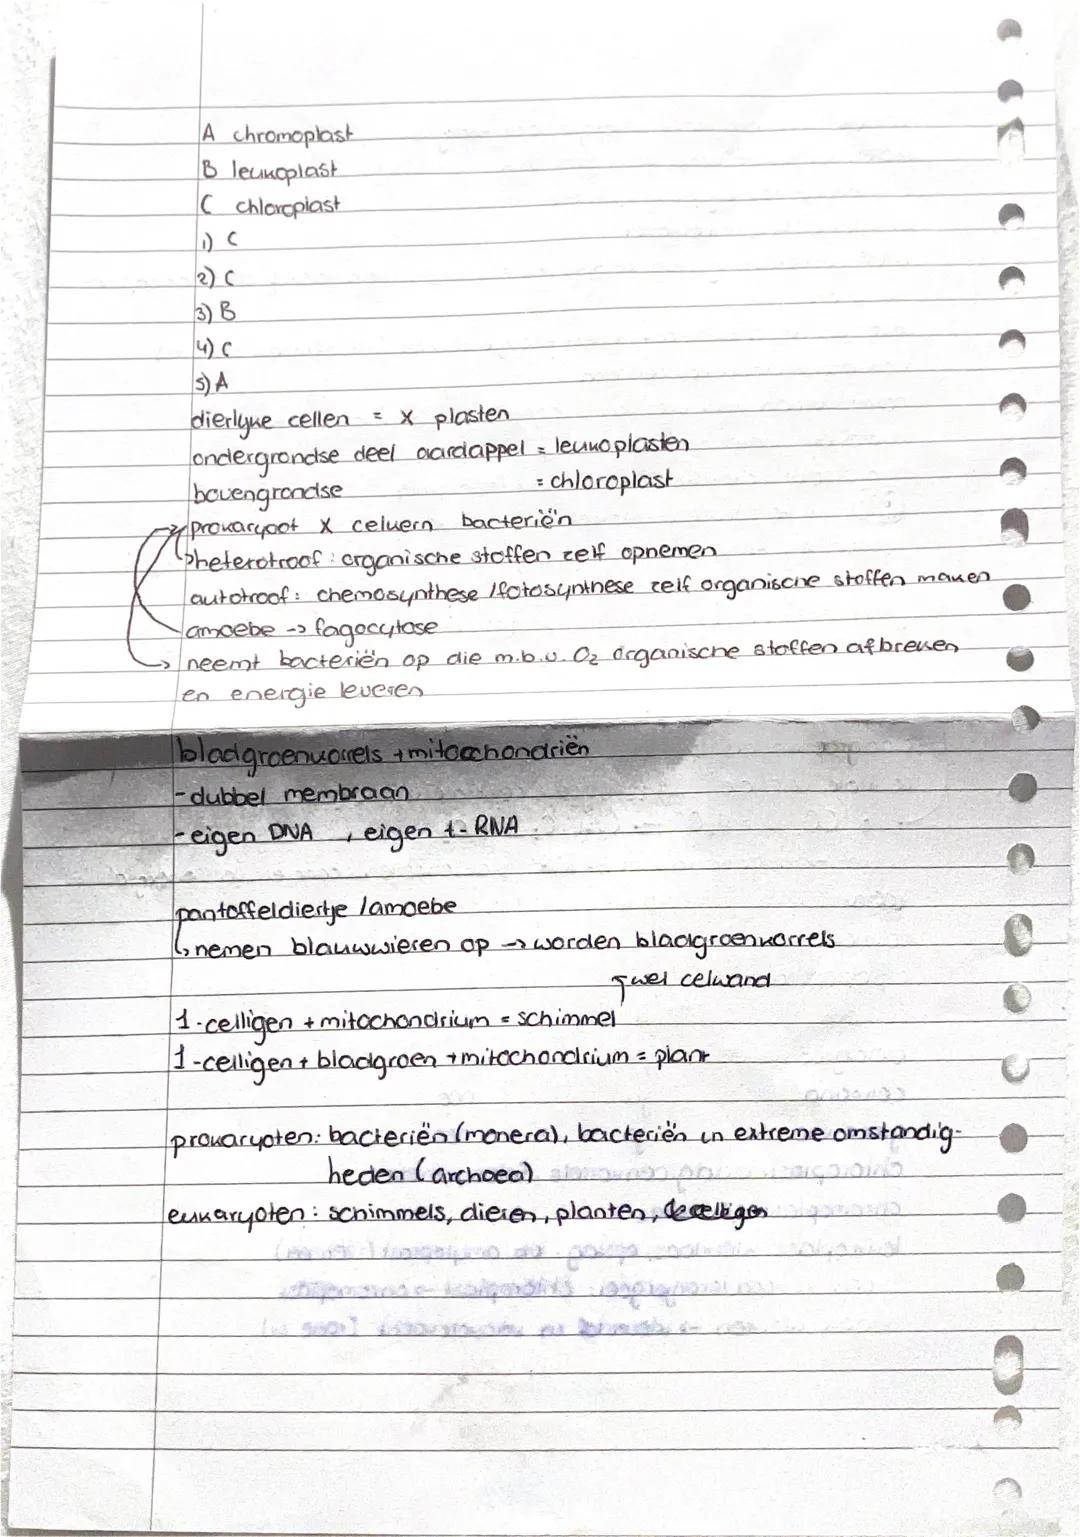 A chromoplast
B leukoplast
C chloroplast
1) C
2) C
3) B
4) C
5) A
dierlyke cellen = x plasten
ondergrondse deel aardappel = leukoplasten
bovengrondse = chloroplast
prokaryoot x celkern bacteriën
↳heterotroof: organische stoffen zelf opnemen
autotroof: chemosynthese /fotosynthese zelf organische stoffen maken
amoebe -> fagocytose
-> neemt bacteriën op die m.b.v. O₂ organische stoffen afbreken
en energie leveren
bladgroenkorrels + mitochondriën
- dubbel membraan
- eigen DNA , eigen t-RNA
pantoffeldiertje /amoebe
↳ nemen blauwwieren op -> worden bladgroenkorrels
wel celwand
1-celligen + mitochondrium = schimmel
1-celligen + bladgroen + mitochondrium = plant
prokaryoten: bacteriën (monera), bacteriën in extreme omstandig-
heden (archaea)
eukaryoten: schimmels, dieren, planten,